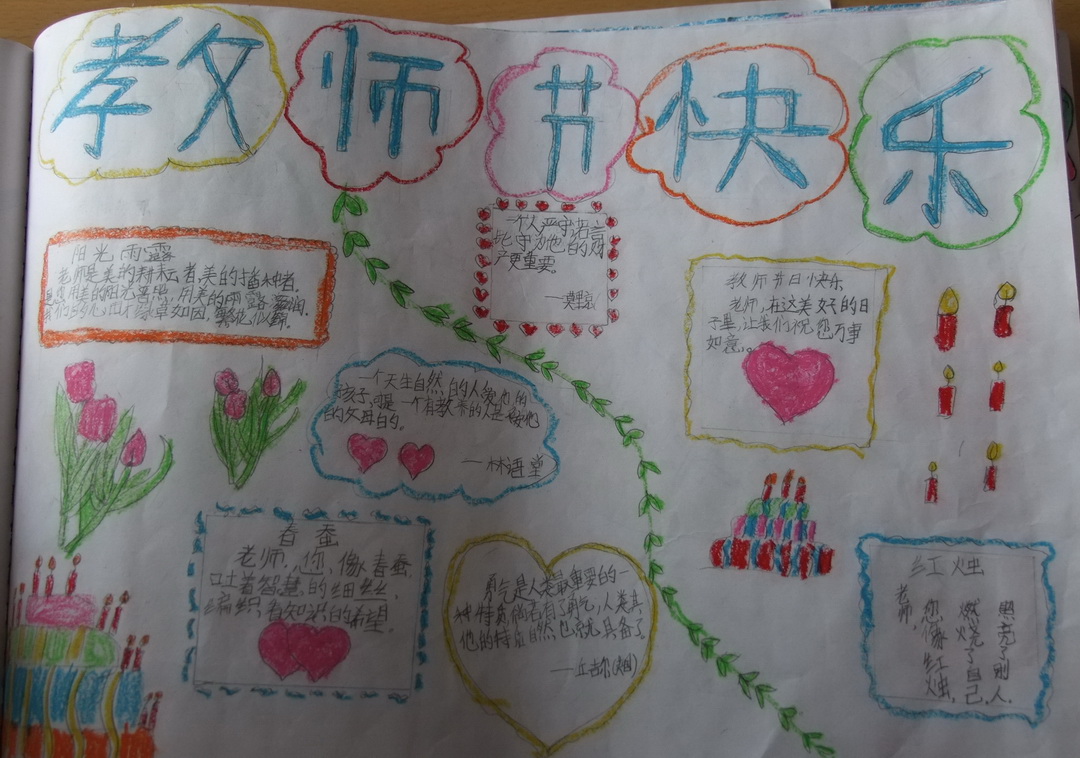 教师节快乐
阳光雨露
老师是美的耕耘者,美的播种者。
是您用美的阳光普照,用美的雨露滋润,
我们的心田才绿草如因,繁花似锦。
一个人严守诺言
比守为他的财
产更重要。
——莫里哀
教师节日快乐
老师,在这美好的日
子里,让我们祝您万事
如意。
一个天生自然的人爱他的
孩子,可是一个有教养的人是爱他
的父母的。
——林语堂
春蚕
老师,你像春蚕,
吐着智慧的细丝,
编织着知识的希望。
勇气是人类最重要的一
种特质,倘若有了勇气,人类其
他的特质自然也就具备了
——丘吉尔(英国)
红烛
老师
您像红烛,
燃烧了自己,
照亮了别人。